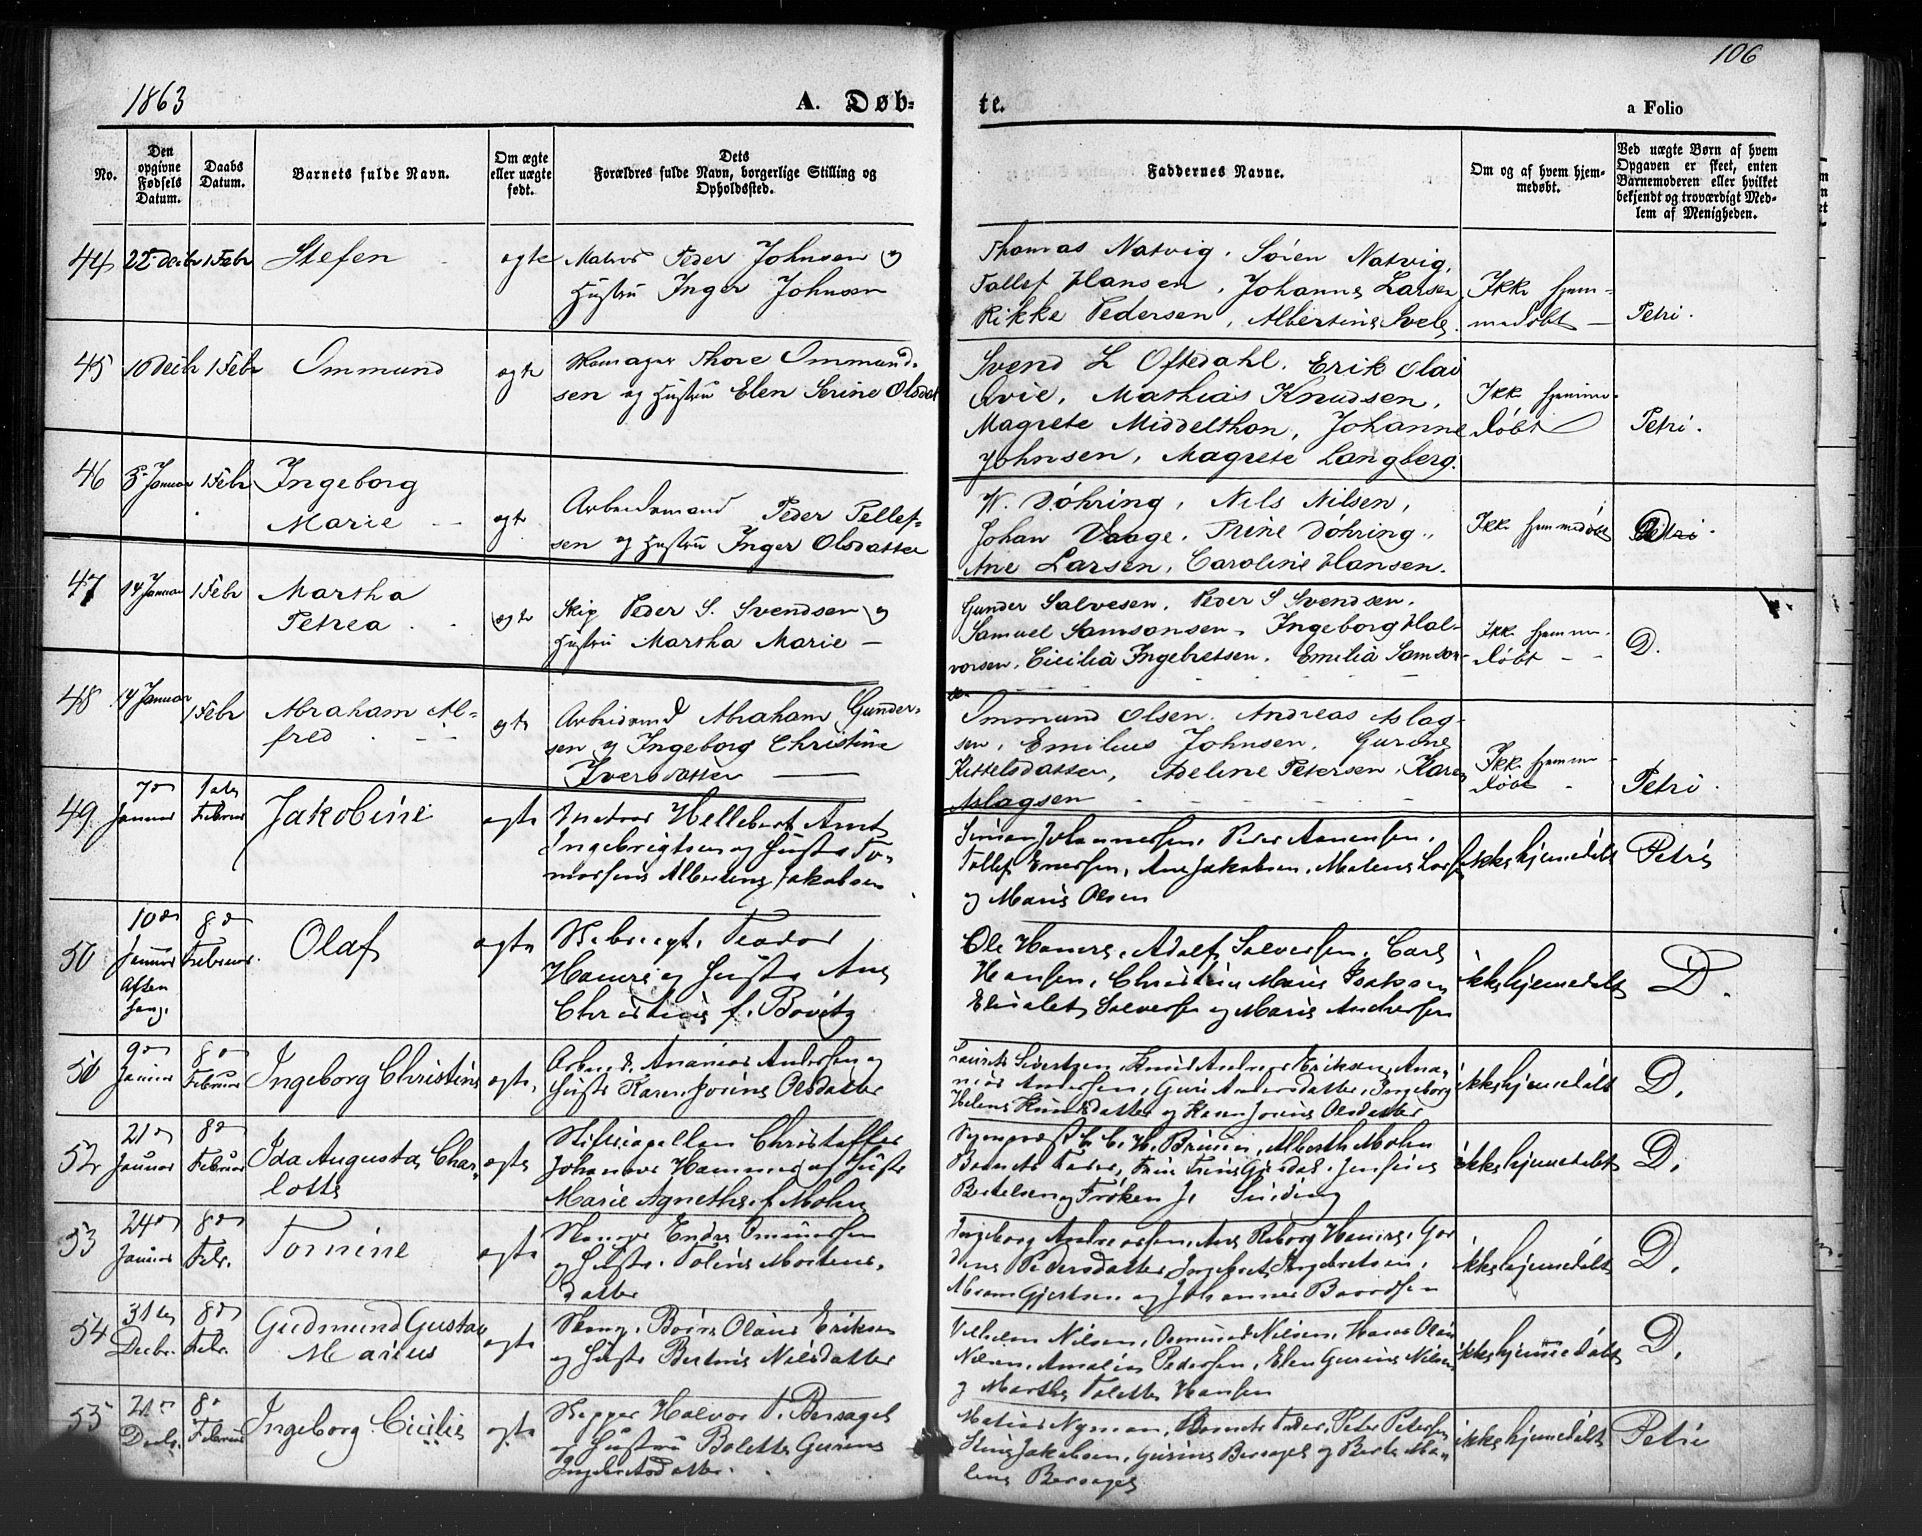 106
1863
A. Døb-
te.
a Folio
No.
Den opgivne Fødsels Datum.
Daabs Datum.
Barnets fulde Navn.
Om ægte eller uægte født.
Dets Forældres fulde Navn, borgerlige Stilling og Opholdssted.
Faddernes Navne.
Om og af hvem hjemmedøbt.
Ved uægte Børn af hvem Opgaven er skeet, enten Barnemoderen eller hvilket bekjendt og troværdigt Medlem af Menigheden.
44 22 Decbr 1 Febr Stefen ægte Matros Peder Johnsen og
Hustru Inger Johnsen
Thomas Natvig. Søren Natvig.
Tollef Hansen, Johannes Larsen
Rikke Pedersen, Albertine
Ikke hjem-
medøbt —
Petri.
45 10 Decbr 1 Febr Ommund ægte Thore Ommund-
sen og Hustru Elen Serine Olsdat
Svend L Oftedahl. Erik Olai
Qvie, Mathias Knudsen,
Magrete Middelthon, Johanne
Johnsen, Magrete Langberg.
Ikk hjemme-
døbt
Petri.
46 5 Januar 1 Febr Ingeborg
Marie — ægte Arbeidsmand Peder Pellef-
sen og Hustru Inger Olsdatter
W. Döhring, Nils Nilsen,
Johan Vaage. Trine Döhring,
Ane Larsen, Caroline Hansen.
Ikke hjemmedøbt
Petri.
47 14 Januar 1 Febr Martha
Petrea ægte Skip Peder S. Svendsen og
Hustru Martha Marie —
Gunder Salvesen. Peder S Svendsen.
Samuel Samsonsen, Ingeborg Hal-
vorsen, Cicilia Ingebretsen. Emilia Samson-
sen
Ikke hjemme-
døbt - -
D.
48 14 Januar 1 Febr Abraham Al-
fred ægte Arbeidsmd Abraham Gunder-
sen og Ingeborg Christine
Iversdatter —
Ommund Olsen. Andreas Aslag-
sen, Emilius Johnsen. Gurine
Kittelsdatter, Adeline Petersen, Karen
Aslagsen
Ikke hjemme-
døbt
Petri.
49 7de Januar 1ste Februar Jakobine ægte Matros Hellebert Arnt
Ingebrigtsen og Hustr
Albertine Jakobsen
Simon Johannessen, Peder Aanensen,
Tollef Enersen, Ane Jakobsen, Malene Lars
og Marie Olsen
ikke hjemedøbt
Petri
50 10de Januar
Aften
8de Februar. Olaf ægte Teodor
Hamre og Hustr Ane
Christine f. Bovitz
Ole Hamre, Adolf Salvesen, Carl
Hansen, Christine Marie Isaksen
Salvesen og Marie Andersen
ikke hjemedøbt
D.
51 9de Januar 8de Februar Ingeborg Christine ægte. Arbmd. Ananias Andersen og
Hustr Karen Jorine Olsdatter
Sivertsen, Knud Andreas Eriksen, Ana-
nias Andersen, Guri Andersdatter, Ingeborg
Helene Knudsdatter og Karen Jorine Olsdatter
ikke hjemedøbt
D.
52 21de Januar 8de Februar Ida Augusta Char-
lotte ægte Stiftscapellan Christoffer
Johannes Hammer og Hustr
Marie Agnethe f. Mohn
Sognepræst C. C. H. Bruun, Alberth Mohn
Barnets Fader, Gjesdal, Jensine
Bertelsen og Frøken J. Sinding
ikke hjemedøbt
D.
53 24de Januar 8de Febr. Tomine ægte Endre Omundsen
og Hustr. Toline Mortens-
datter
Ingeborg Andreassen, Ane Reborg Hamre, Gor
dine Pedersdatter, Ingebret Ingebretsen,
Abram Gjertsen og Johannes Baardsen
ikke hjemedøbt
D.
54 31te Decbr. 8de Febr. Gudmund Gustav
Marius ægte Børre Olaus Eriksen
og Hustr Bertine Nilsdatter
Vilhelm Nilsen, Osmund Nilsen, Hans Olai
Nilsen, Amalia Pedersen, Elen Gurine Nilsen
og Marthe Tolette Hansen
ikke hjemmedøbt
D.
55 21de Decbr. 8de Februar Ingeborg Cicilie ægte Skipper Halvor T. Bersagel
og Hustru Bolette Gurine
Ingebretsdatter.
Matias Nyman, Barnets Fader, Peter Petersen
Stine Jakobsen, Gurine Bersagel og Berte Ma-
lene Bersagel
ikke hjemedøbt
Petri